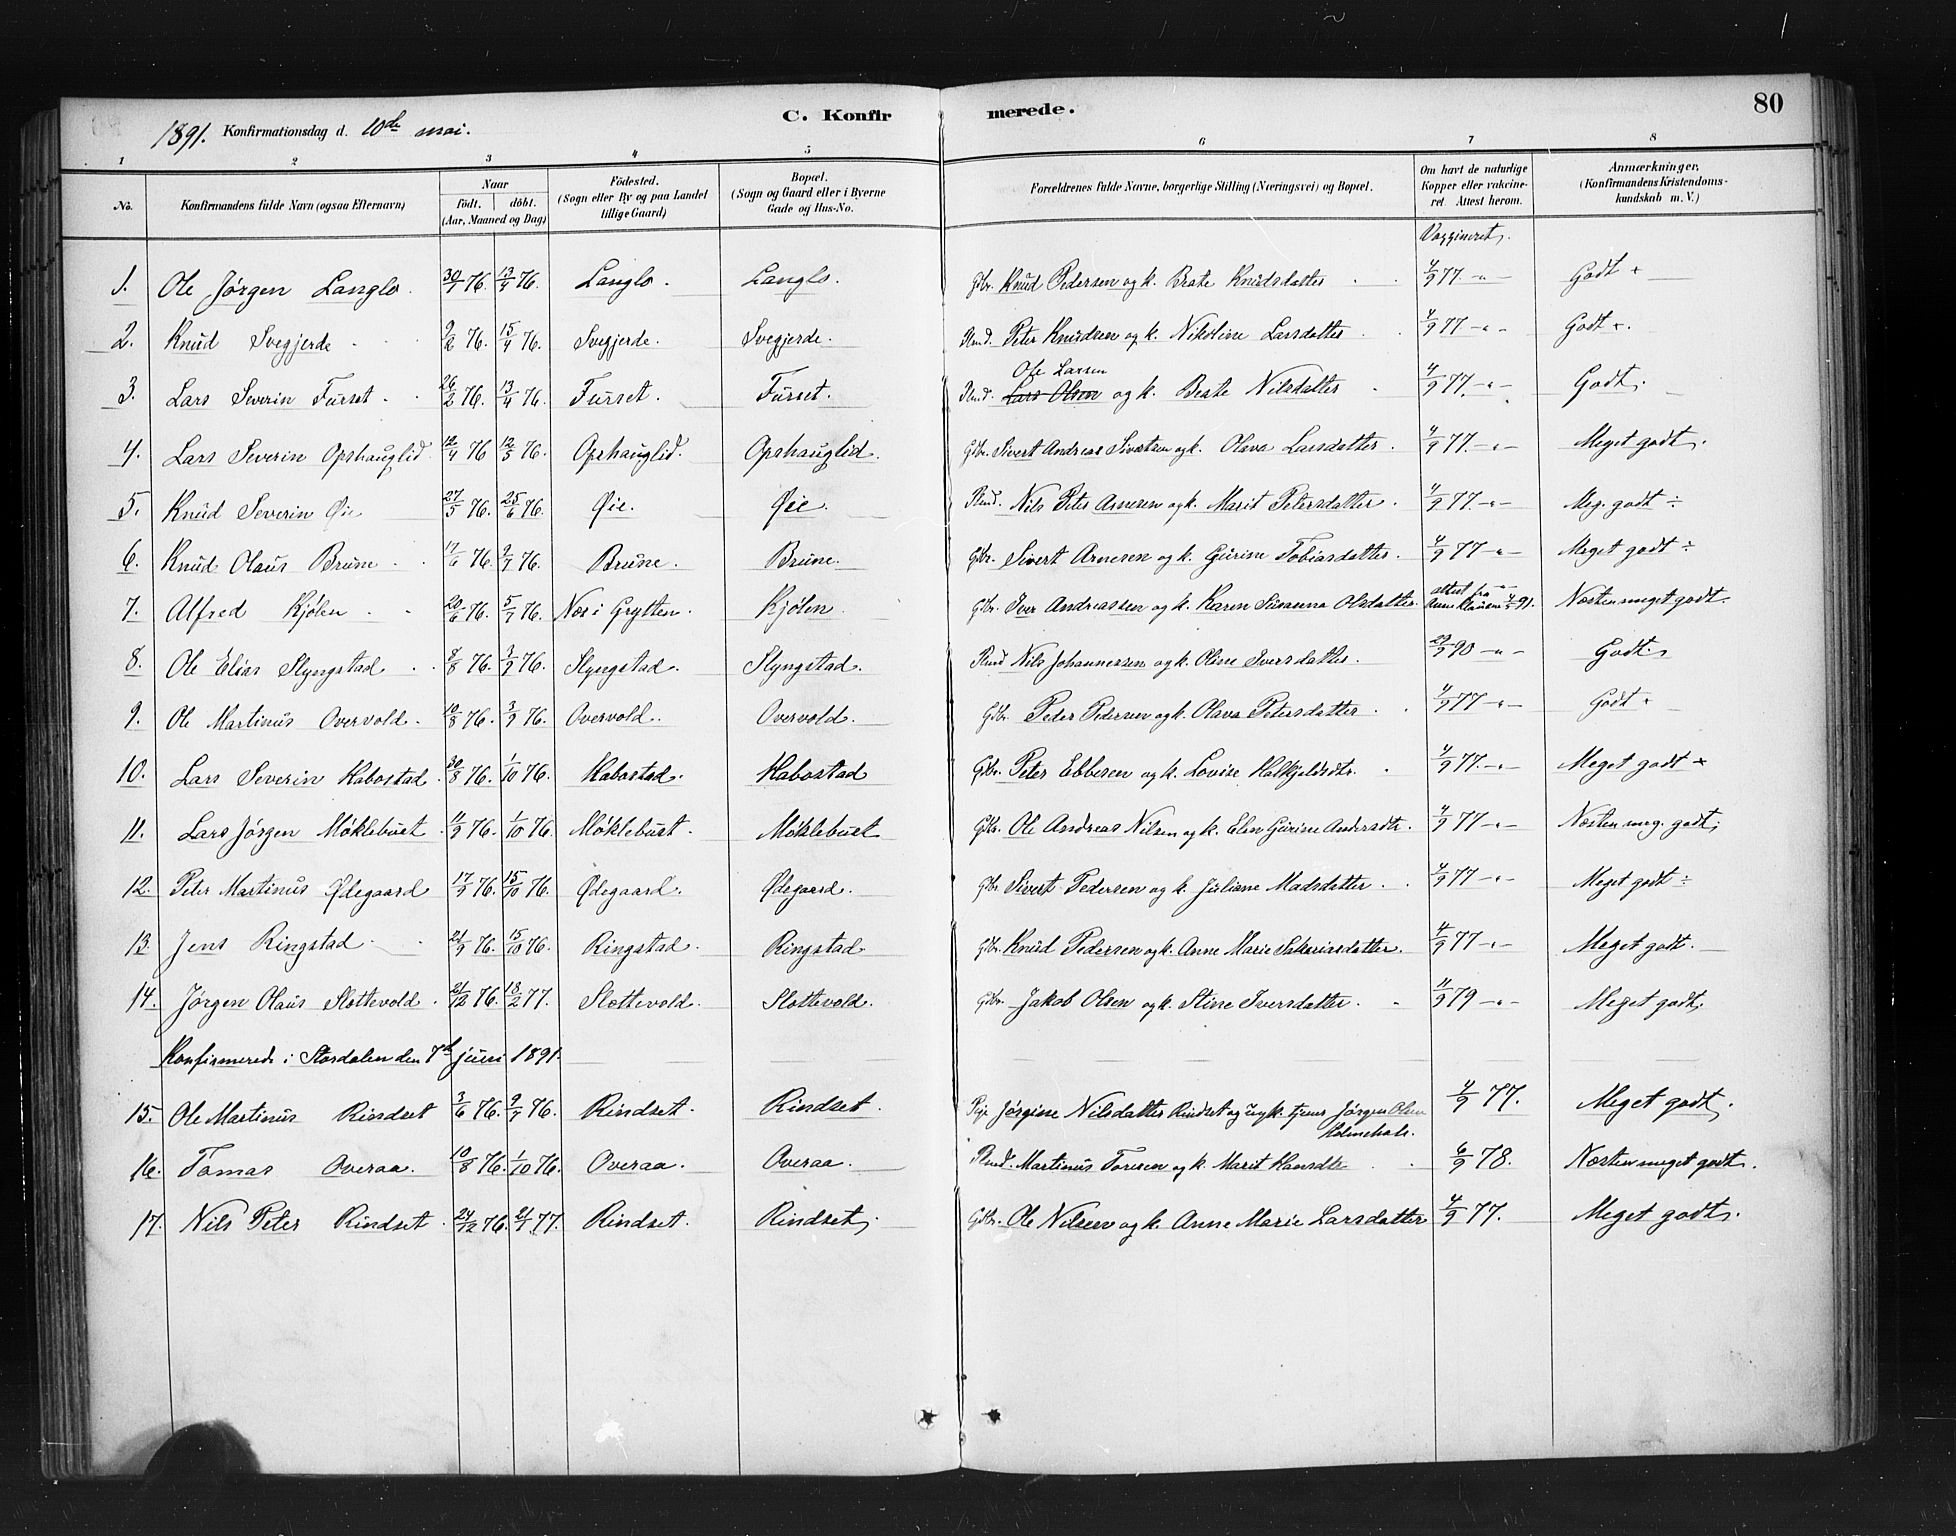 80
1891. Konfirmationsdag d. 10de mai. C. Konfirmerede.
1 2 3 4 5 6 7 8
No. Konfirmandens fulde Navn (ogsaa Efternavn) Naar født. døbt. (Aar, Maaned og Dag) Fødested. (Sogn eller By og paa Landet tillige Gaard) Bopæl. (Sogn og Gaard eller i Byerne Gade og Hus-No. Forældrenes fulde Navne, borgerlige Stilling (Næringsvei) og Bopæl. Om havt de naturlige Kopper eller vakcineret. Attest herom. Anmærkninger, (Konfirmandens Kristendomskundskab m. V.)
Vaggineret.
1. Ole Jørgen Langlo. 30/7 76. 13/9 76. Langlo. Langlo. Gbr. Knud Pedersen og k. Beate Knudsdatter 4/9 77. -"- Godt +
2. Knud Svegjerde 9/2 76. 15/4 76. Svegjerde. Svegjerde. Plmd. Peter Knudsen og k. Nikoline Larsdatter 4/9 77 -"- Godt +.
3. Lars Severin Furset 26/2 76. 13/4 76. Furset. Furset. Plmd. Lars Olsen Ole Larsen og k. Beate Nilsdatter 4/9 77. -"- Godt.
4. Lars Severin Opshauglid 12/4 76 12/5 76. Opshauglid. Opshauglid. Gbr. Sivert Andreas Sivertsen og k. Olava Larsdatter. 4/9 77. -"- Meget godt.
5. Knud Severin Øie 27/5 76. 25/6 76. Øie. Øie. Plmd. Nils Peter Arnesen og k. Marit Petersdatter. 4/9 77. -"- Meg. godt ÷
6. Knud Olaus Brune 17/6 76. 9/7 76. Brune. Brune. Gbr. Sivert Arnesen og k. Gurine Tobiasdatter. 4/9 77 -"- Meget godt ÷
7. Alfred Kjølen 20/6 76. 5/7 76. Nes i Grytten. Kjølen Gbr. Iver Andreassen og k. Karen Susanna Olsdatter. attest fra 91. Næsten meget godt.
8. Ole Elias Slyngstad 8/8 76. 3/9 76. Slyngstad. Slyngstad. Plmd Nils Johannessen og k. Oline Iversdatter. 29/9 90 -"- Godt.
9. Ole Martinus Overvold. 10/8 76. 3/9 76. Overvold. Overvold. Gbr. Peter Pedersen og k. Olava Petersdatter. 4/9 77 -"- Godt +
10. Lars Severin Habostad. 30/8 76. 1/10 76. Habostad. Habostad Gbr. Peter Ebbesen og k. Lovise Halkjeldsdtr. 4/9 77. -"- Meget godt +
11. Lars Jørgen Møklebust. 11/9 76. 1/10 76. Møklebust. Møklebust Gbr. Ole Andreas Nilsen og k. Elen Gurine Andersdtr. 4/9 77 -"- Næsten meg. godt;
12. Peter Martinus Ødegaard 17/9 76. 15/10 76. Ødegaard. Ødegaard. Gbr. Sivert Pedersen og k. Juliane Madsdatter. 4/9 77 -"- Meget godt ÷
13. Jens Ringstad 21/9 76. 15/10 76. Ringstad. Ringstad Gbr. Knud Pedersen og k. Anne Marie Sakariasdatter. 4/9 77 -"- Meget godt.
14. Jørgen Olaus Slottevold. 21/12 76. 18/2 77. Slottevold. Slottevold. Gbr. Jakob Olsen og k. Stine Iversdatter. 11/9 79 -"- Meget godt.
Konfirmerede i Stordalen den 7de juni 1891.
15. Ole Martinus Rindset 3/6 76. 9/7 76. Rindset. Rindset. Pige Jørgine Nilsdatter Rindset og ungk. tjener Jørgen Olsen Holmehals. 4/9 77. Meget godt.
16. Tomas Overaa. 10/8 76. 1/10 76. Overaa. Overaa. Plmd. Martinus Toresen og k. Marit Hansdtr 6/9 78. Næsten meget godt.
17. Nils Peter Rindset. 24/12 76. 21/1 77. Rindset. Rindset; Gbr. Ole Nilsen og k. Anne Marie Larsdatter 4/9 77. Meget godt.